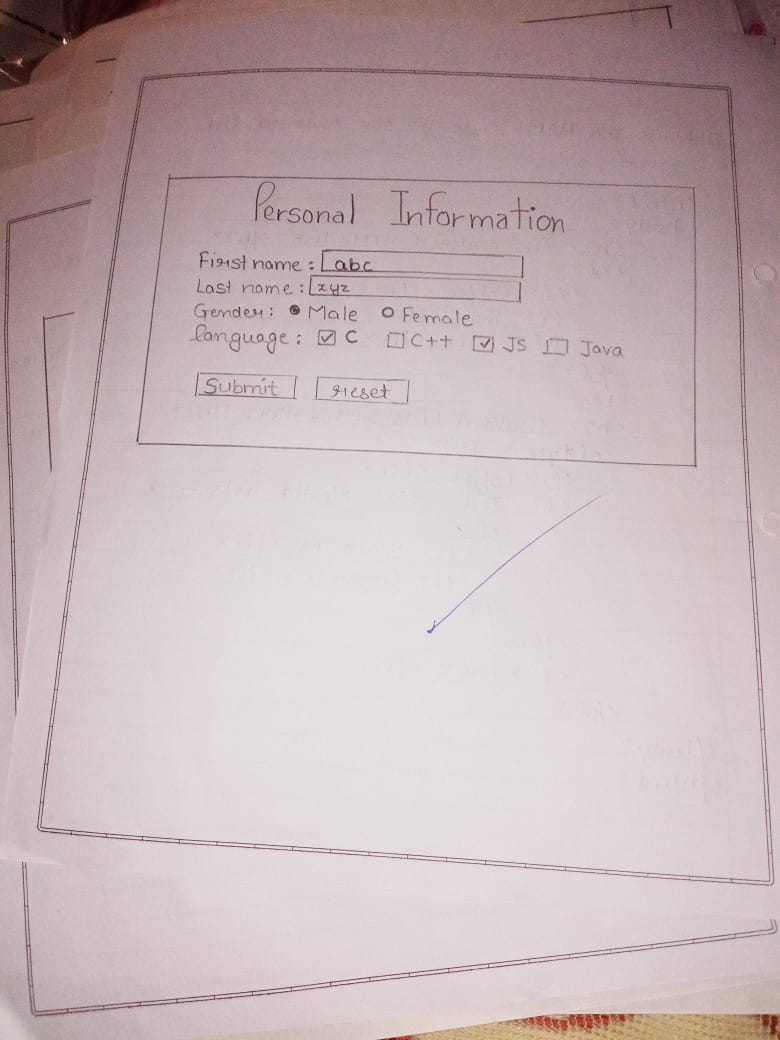 Personal Information
First name : abc
Last name : xyz
Gender : Male Female
language : C C++ JS Java
Submit reset